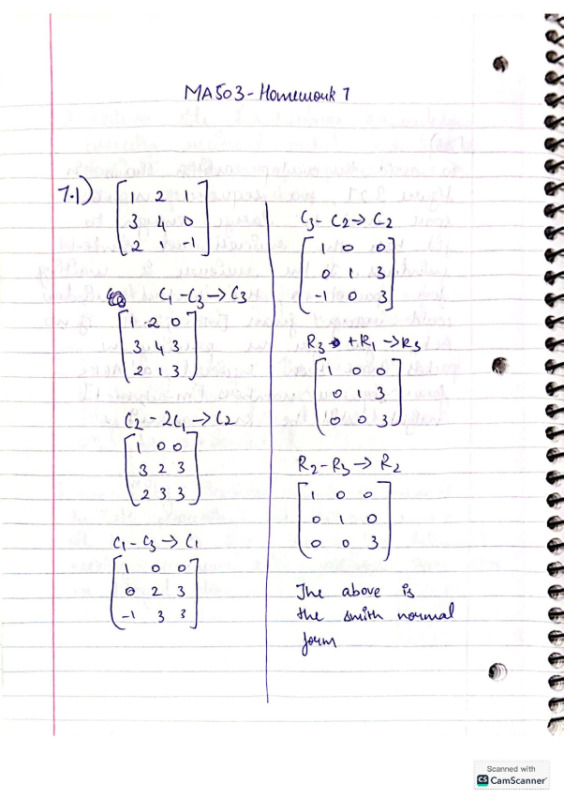 MA503-Homework 7
7.1)
[1 2 1
3 4 0
2 1 -1]
C1 - C3 → C3
[1 2 0
3 4 3
2 1 3]
C2 - 2C1 → C2
[1 0 0
3 2 3
2 3 3]
C1 - C3 → C1
[1 0 0
0 2 3
-1 3 3]
C3 - C2 → C2
[1 0 0
0 1 3
-1 0 3]
R3 + R1 → R3
[1 0 0
0 1 3
0 0 3]
R2 - R3 → R2
[1 0 0
0 1 0
0 0 3]
The above is
the smith normal
form
Scanned with
CS CamScanner